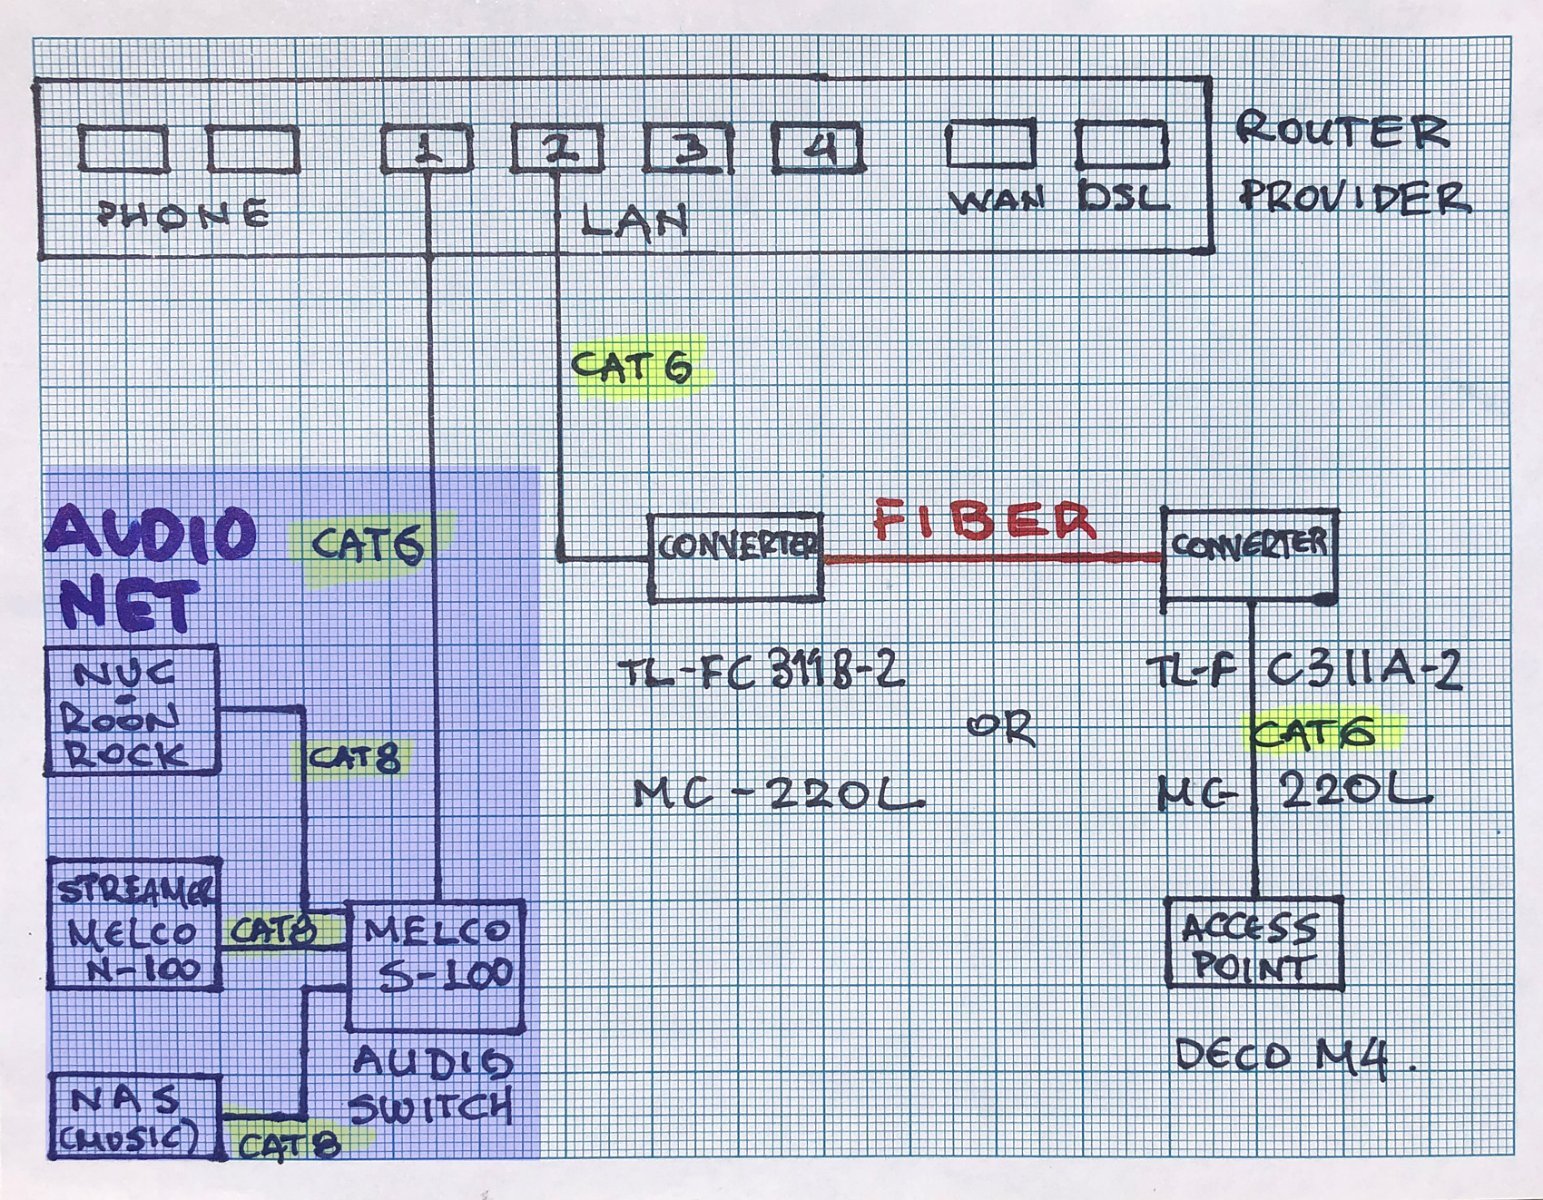 1
2
3
4
PHONE
LAN
WAN
DSL
ROUTER
PROVIDER
CAT 6
AUDIO
NET
CAT6
NUC
-
ROON
ROCK
CAT8
STREAMER
MELCO
N-100
CAT8
MELCO
S-100
AUDIO
SWITCH
NAS
(MUSIC)
CAT8
CONVERTER
FIBER
CONVERTER
TL-FC311B-2
TL-FC311A-2
OR
CAT6
MC-220L
MC-220L
ACCESS
POINT
DECO M4.